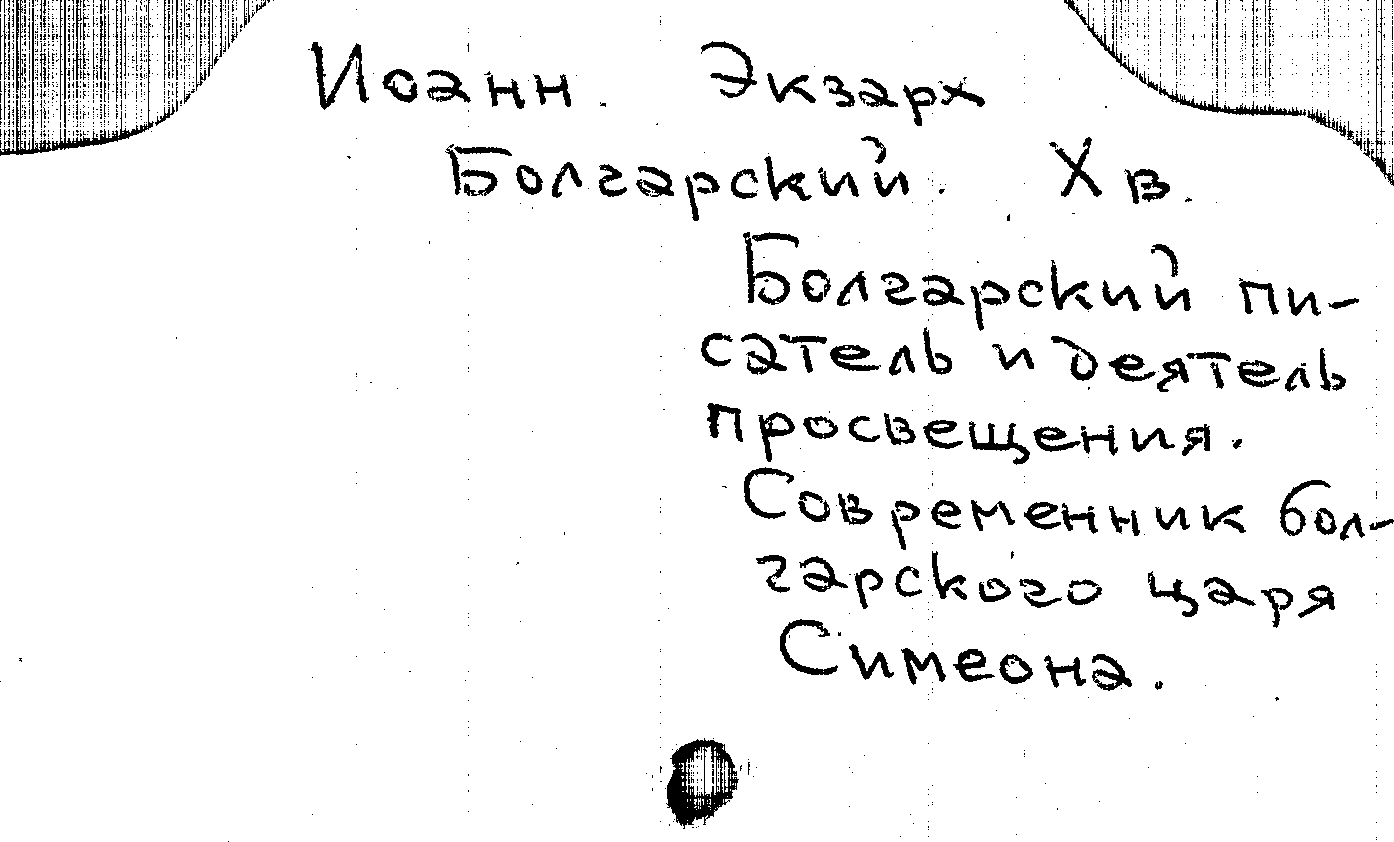 Иоанн Экзарх
Болгарский. X в.
Болгарский пи-
сатель и деятель
просвещения.
Современник бол-
гарского царя
Симеона.